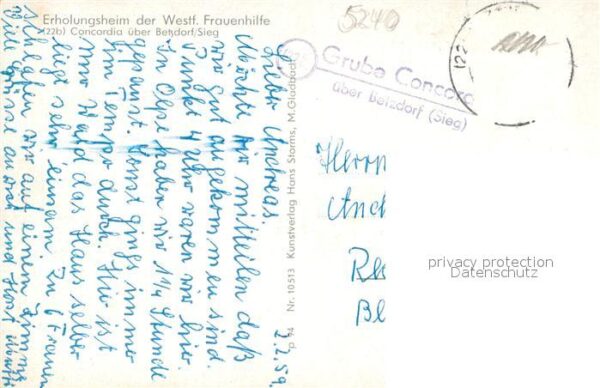 Erholungsheim der Westf. Frauenhilfe
(22b) Concordia über Betzdorf/Sieg
5240
Grube Concord
über Betzdorf (Sieg)
(22
2.2.59.
Lieber Andreas.
Möchte dir mitteilen daß
wir gut angekommen sind.
Punkt 4 Uhr waren wir hier.
In Olpe haben wir 1 1/4 Stunde
gepaust. Sonst gings immer
im Tempo durch. Hier ist
nur Wald das Haus selber
liegt sehr einsam. Zu 6 Frauen
schlafen wir auf einem Zimmer
Viele Grüsse an dich und Horst
p 94 Nr. 10513 Kunstverlag Hans Storms, M.Gladbach
Herrn
And
Re
Bl
privacy protection
Datenschutz